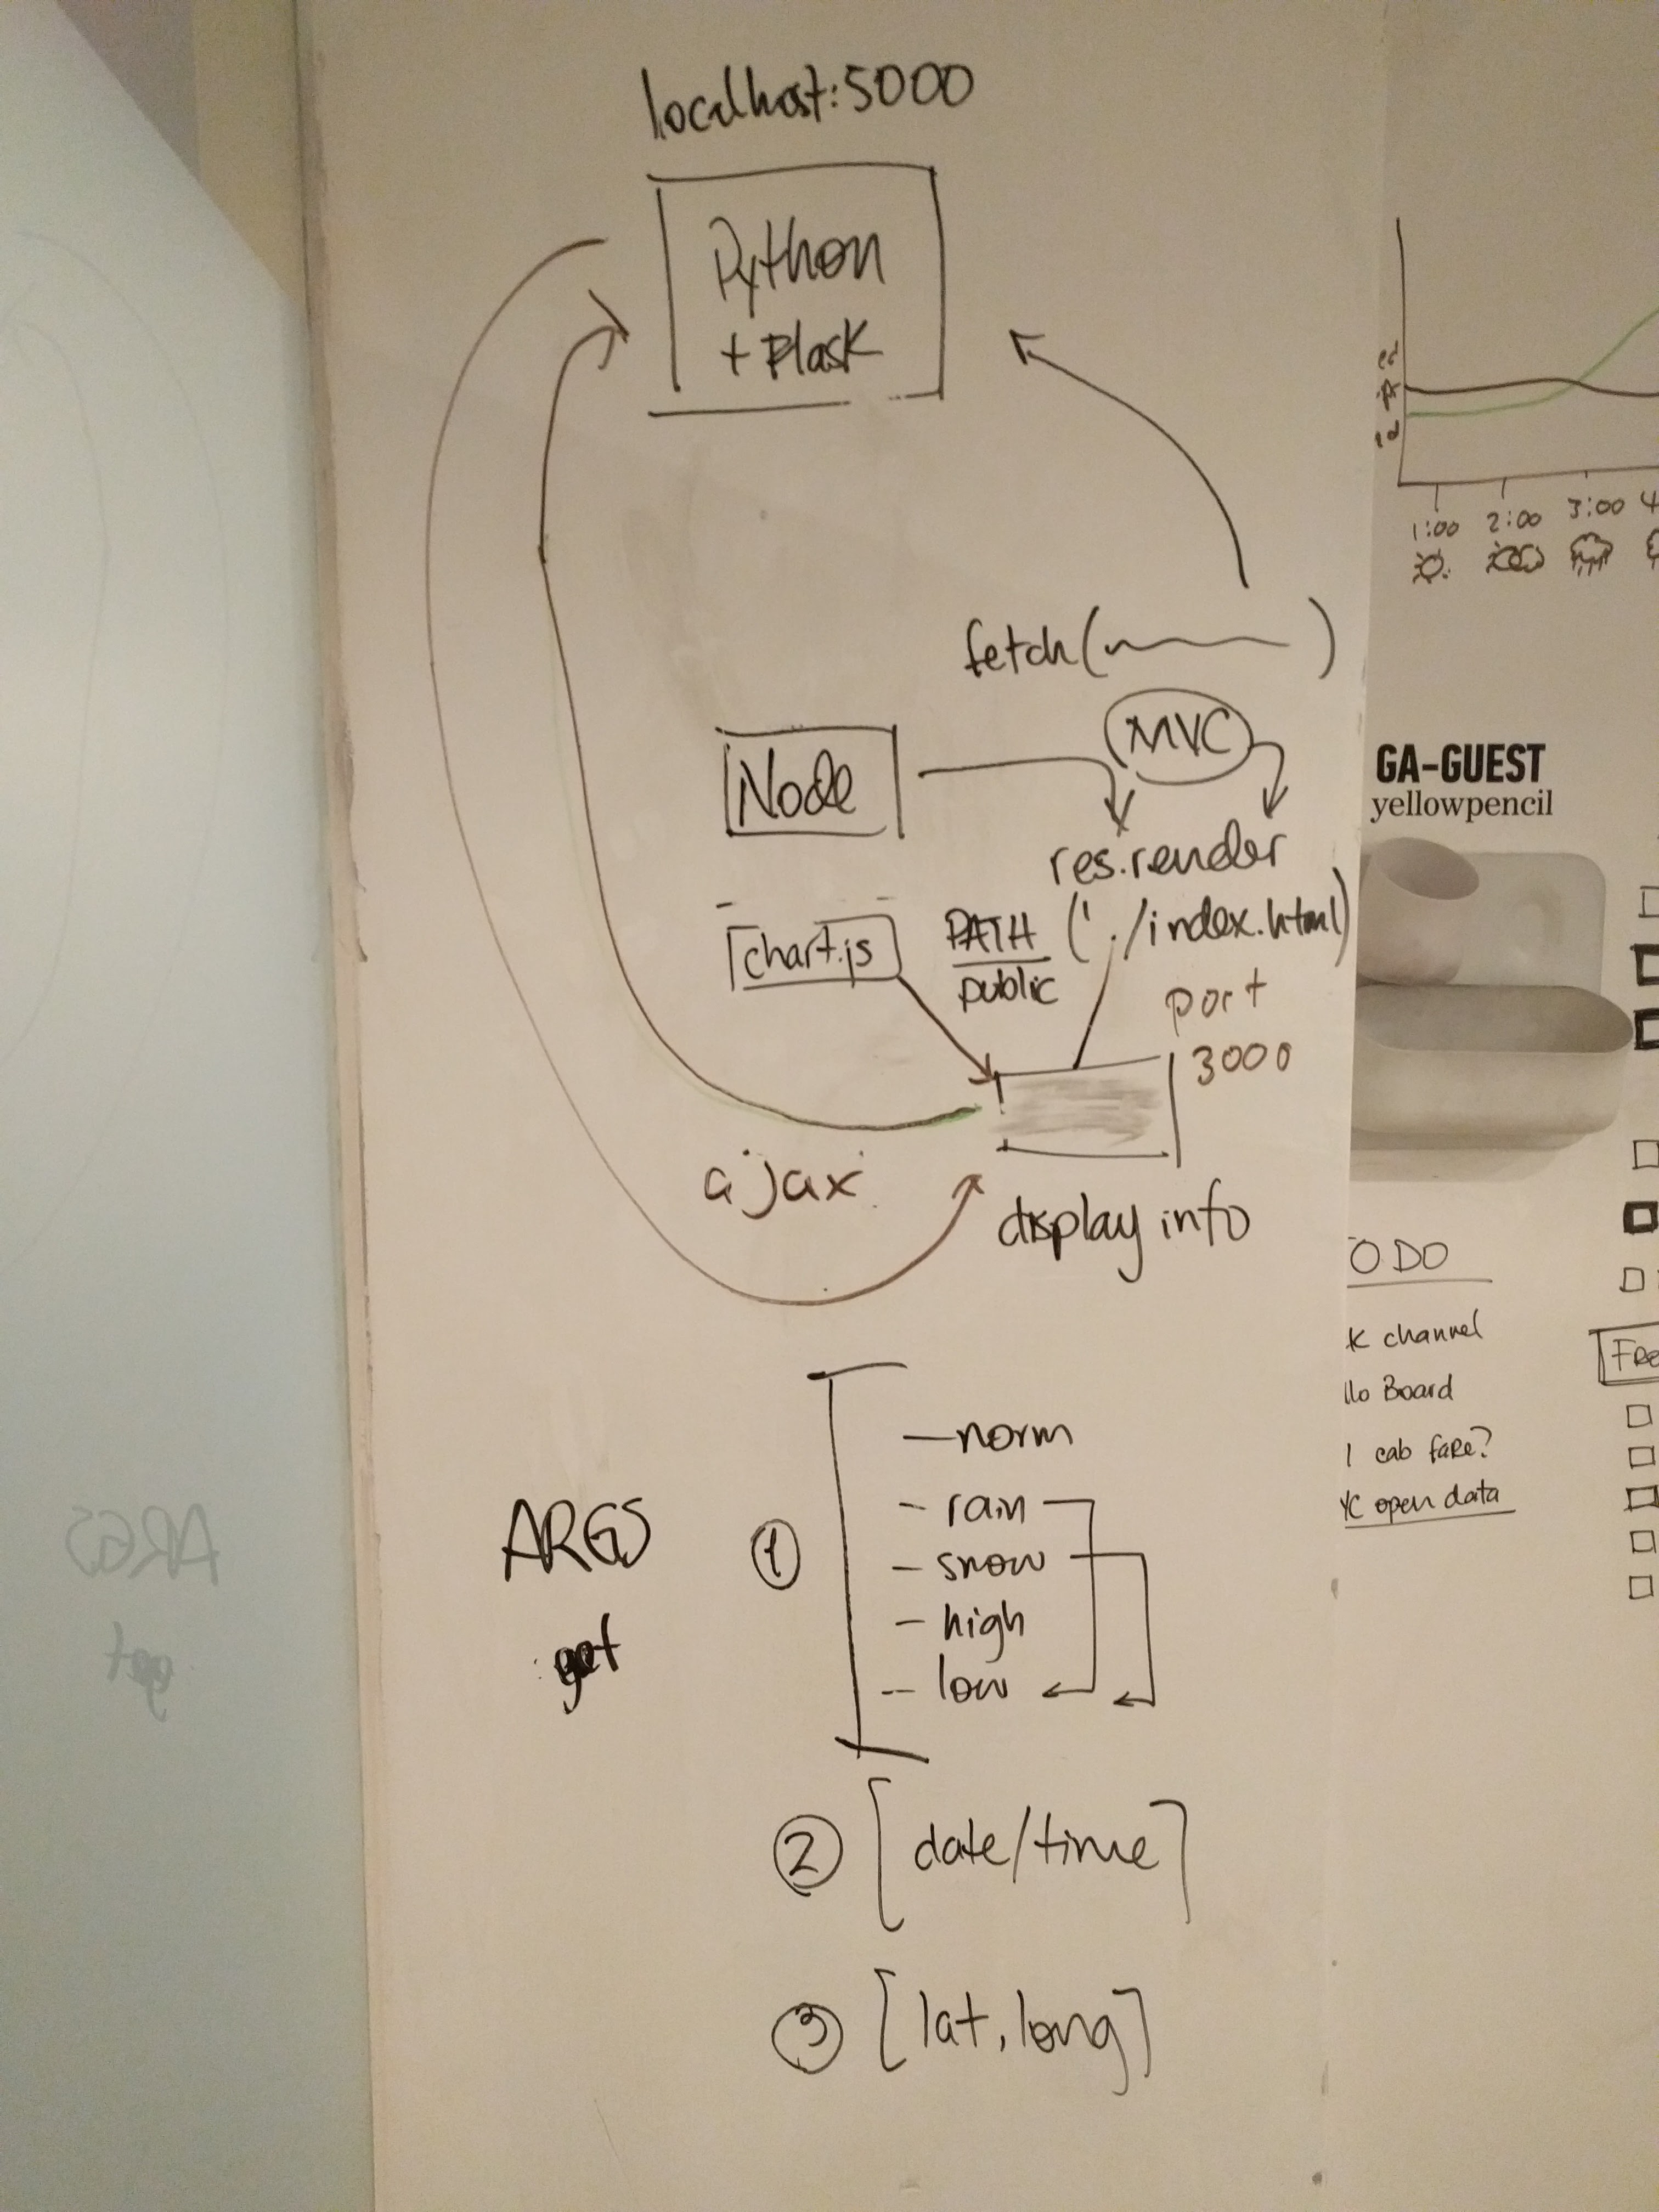 localhost:5000
Python
+ Flask
fetch( )
MVC
Node
res.render
('./index.html)
PATH
public
chart.js
port
3000
ajax
display info
ARGS
get
①
— norm
- rain
- snow
- high
-- low
② [date/time]
③ [lat, long]
1:00 2:00 3:00 4
GA-GUEST
yellowpencil
O DO
k channel
llo Board
l cab fare?
YC open data
FRE
ARGS
get